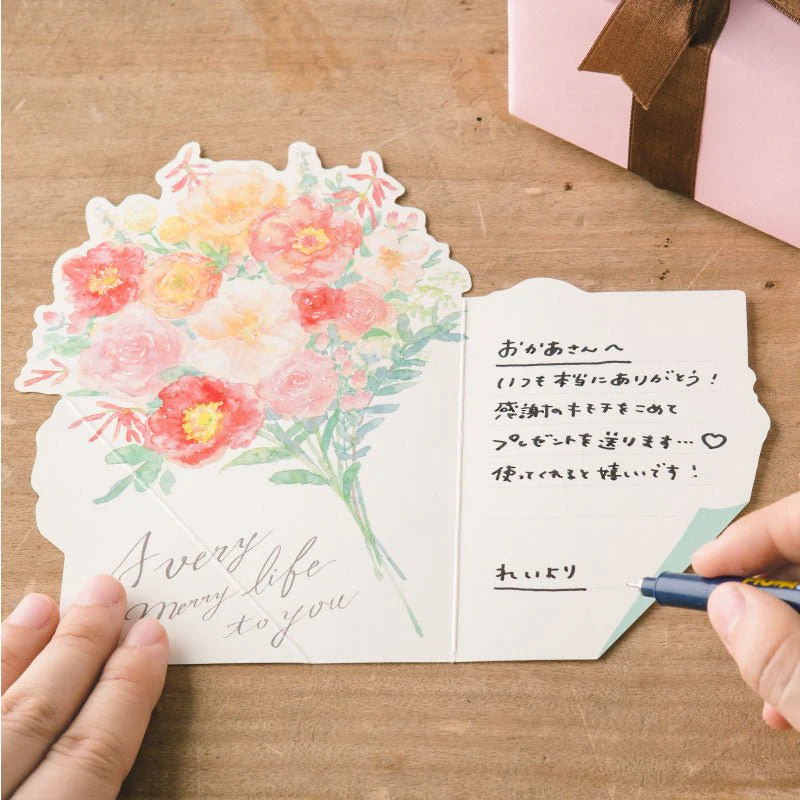 A very
merry life
to you
おかあさんへ
いつも本当にありがとう!
感謝のキモチをこめて
プレゼントを送ります…♡
使ってくれると嬉しいです!
れいより